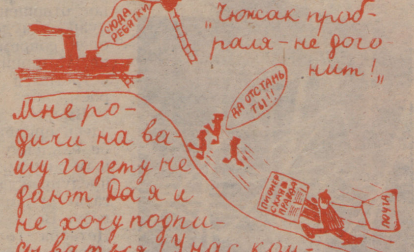 СЮДА
РЕБЯТКИ
„Чюжак проб-
раля - не дого
нит!„
ДА ОТСТАНЬ
ТЫ!!
Мне ро-
дичи на ва-
шу газету не
дают Да я и
не хочу подпи-
сываться! У нас кри-
ПИОНЕР
ПРАВДА
ПОЧТА